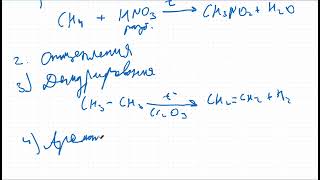 CH₄ + HNO₃ →(t) CH₃NO₂ + H₂O
разб.
2. Отщепления
3) Дегидрирования
CH₃ – CH₃ →(t°, Cr₂O₃) CH₂=CH₂ + H₂
4) Аромат